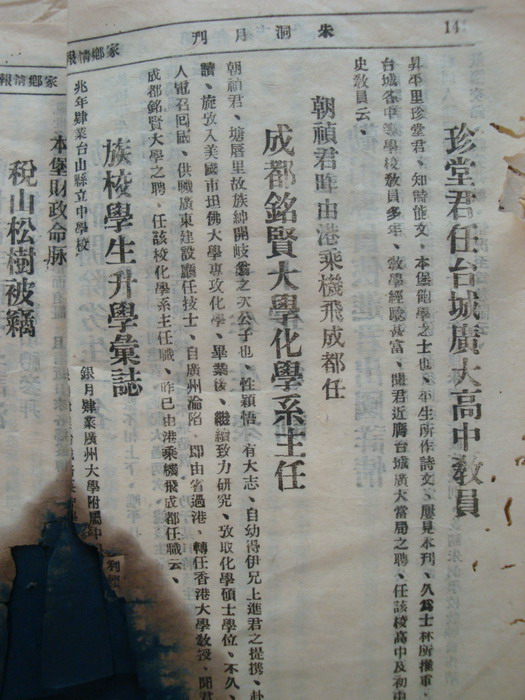 14
朱洞月刊
家鄉情報
珍堂君任台城廣大高中教員
昇平里珍堂君、知詩能文、本堡勤學之士也、平生所作詩文、屢見本刊、久為士林所推重
台城各中等學校教員多年、敎學經驗甚富、聞君近膺台城廣大當局之聘、任該校高中及初中
史敎員云、
朝禎君昨由港乘機飛成都任
成都銘賢大學化學系主任
朝禎君、塘唇里故族紳開岐翁之公子也、性穎悟、有大志、自幼得伊兄上進君之提携、赴
讀、旋攷入美國市坦佛大學專攻化學、畢業後、繼續致力研究、攷取化學碩士學位、不久、
人電召回國、供職廣東建設廳任技士、自廣州淪陷、即由省過港、轉任香港大學敎授、聞君
成都銘賢大學之聘、任該校化學系主任職、昨已由港乘機飛成都任職云、
族棱學生升學彙誌
兆年肄業台山縣立中學校
銀月肄業廣州大學附屬中
家鄉情報
本堡財政命脉
稅山松樹被竊